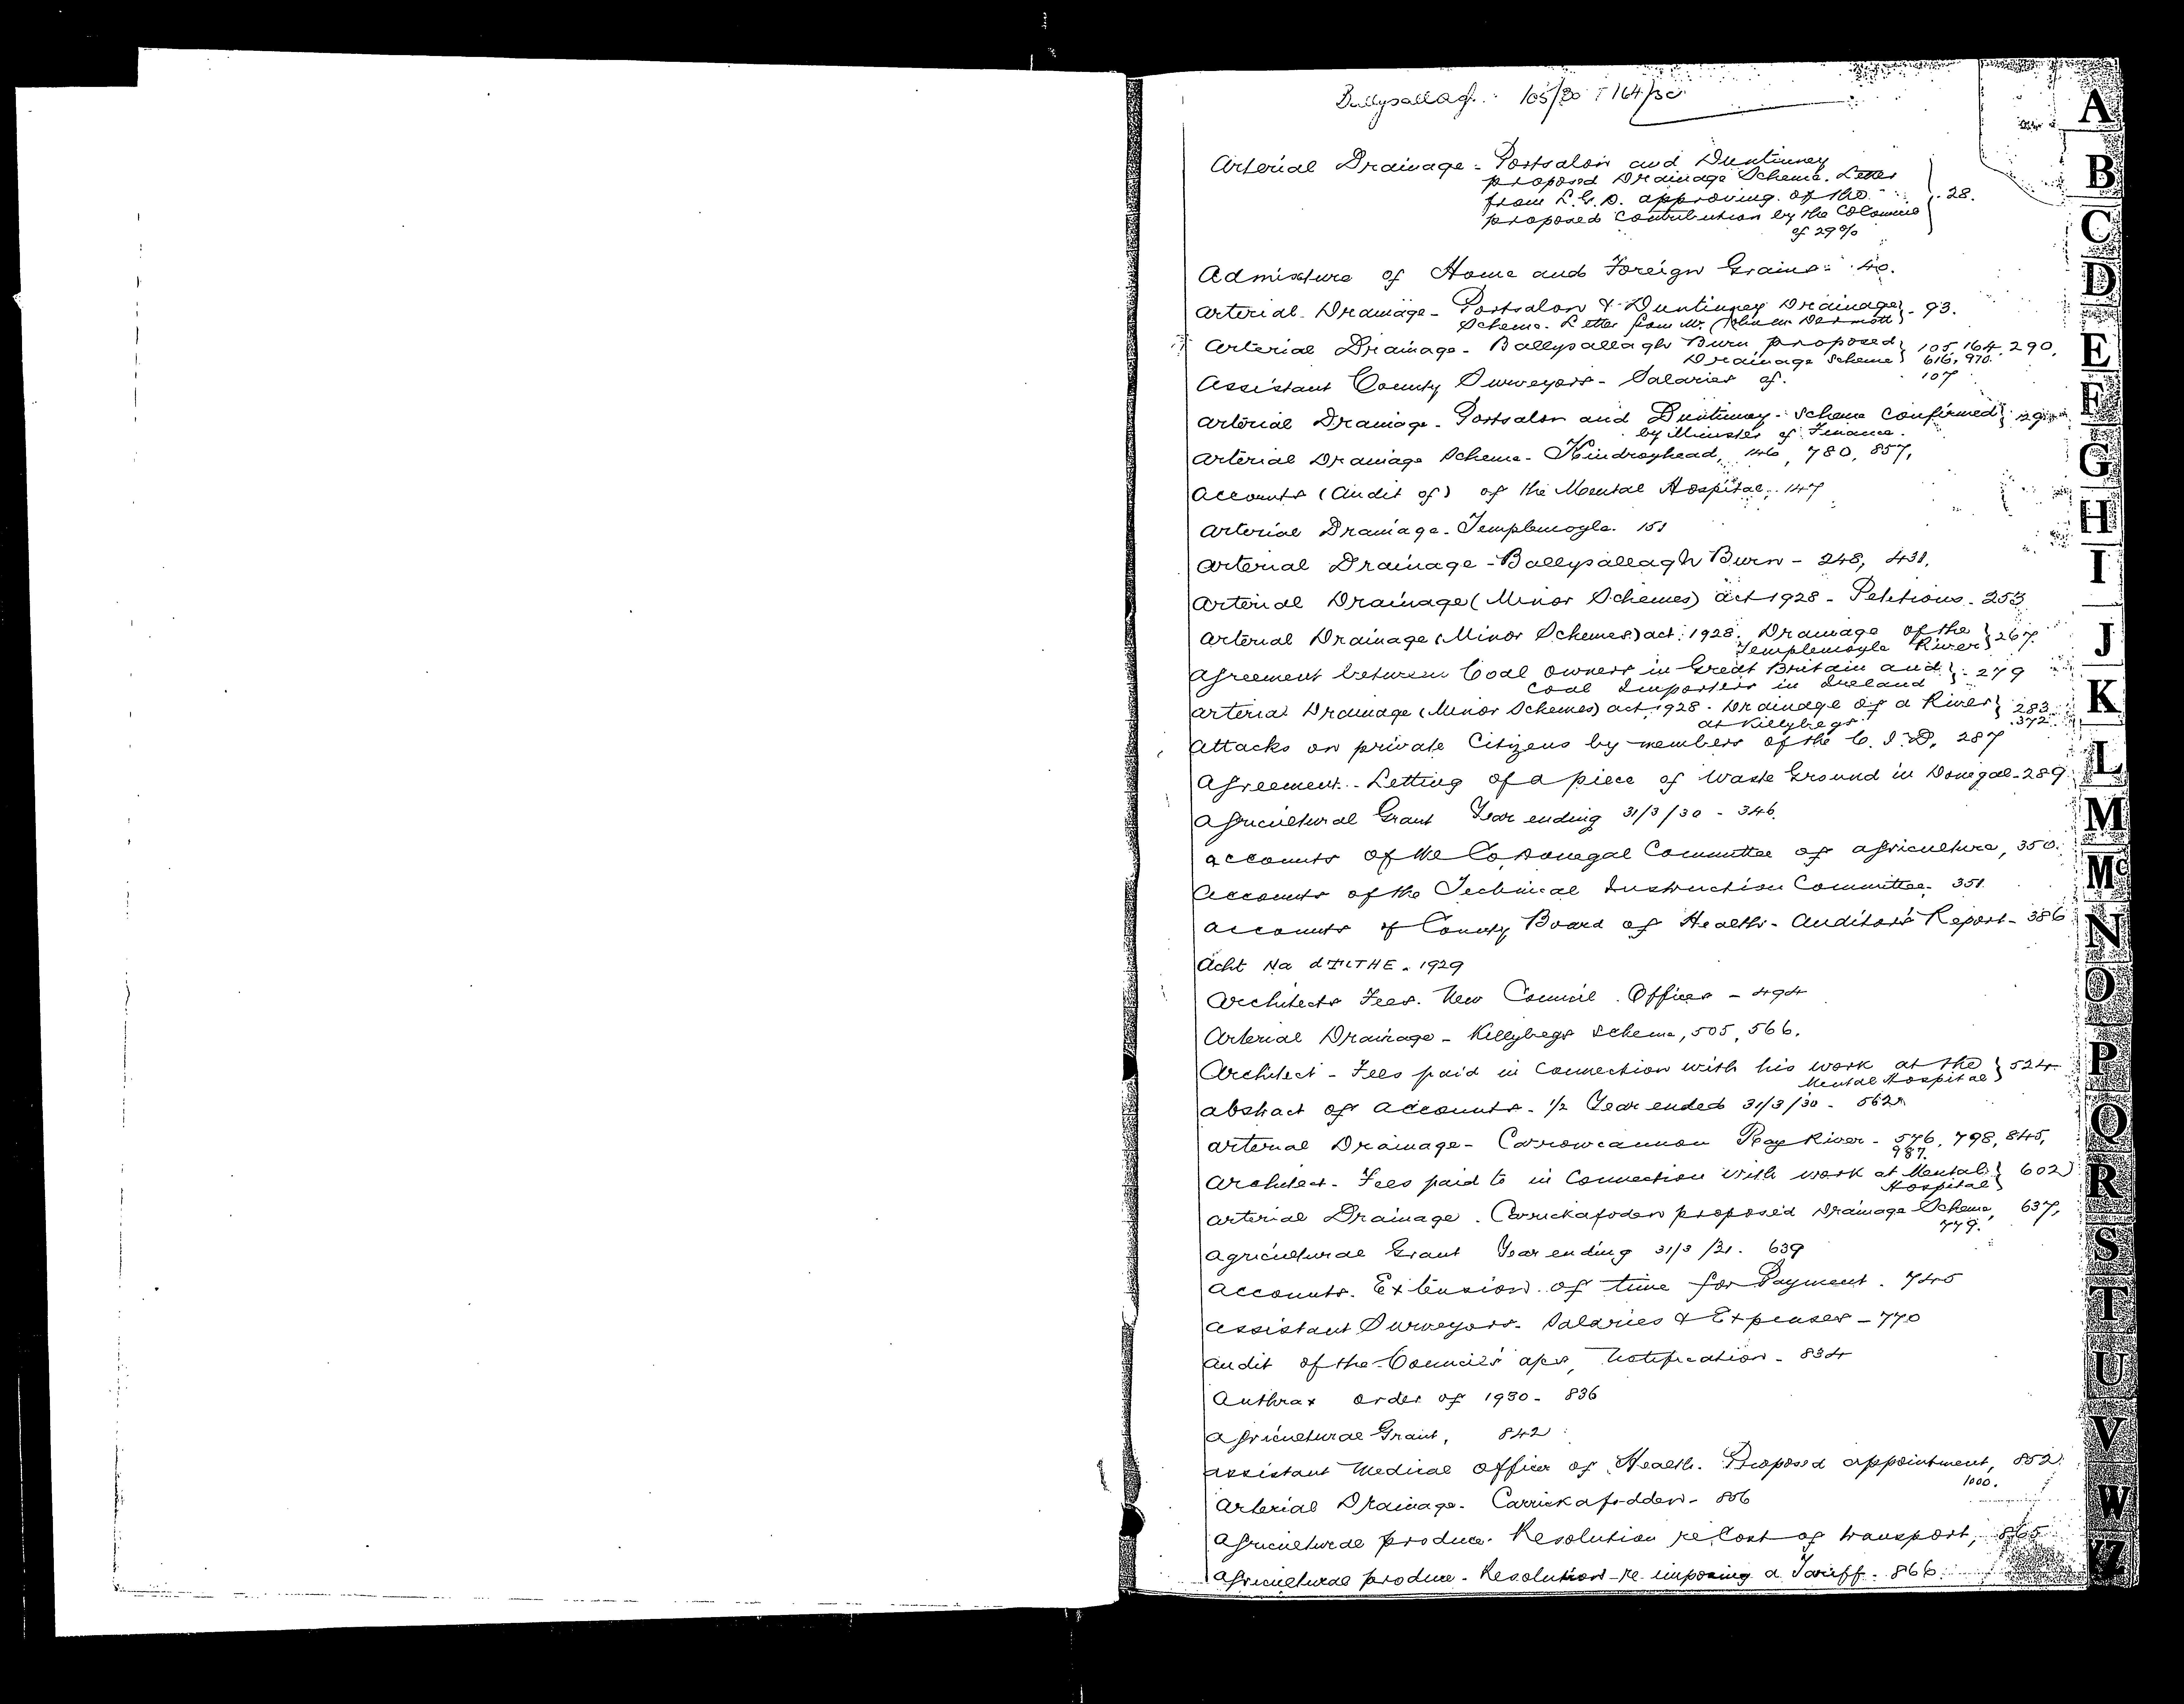 Ballysallagh : 105/30 + 164/30
Arterial Drainage - Portsalon and Duntinney
proposed Drainage Scheme. Letter
from L.G.D. approving of the
proposed contribution by the Co Council
of 29%
28.
Admixture of Home and Foreign Grains: 40.
Arterial Drainage - Portsalon & Duntinney Drainage } 93.
Scheme. Letter from Mr. John McDermott
Arterial Drainage - Ballysallagh Burn proposed } 105, 164, 290,
Drainage Scheme } 616, 970.
Assistant County Surveyors - Salaries of. 107
Arterial Drainage - Portsalon and Duntinney - Scheme confirmed }
by Minister of Finance.
Arterial Drainage Scheme - Kindroyhead, 146, 780, 857,
Accounts (Audit of) of the Mental Hospital. 147
Arterial Drainage - Templemoyle. 151
Arterial Drainage - Ballysallagh Burn - 248, 431,
Arterial Drainage (Minor Schemes) Act 1928 - Petitions - 253
Arterial Drainage (Minor Schemes) Act 1928. Drainage of the } 267.
Templemoyle River
Agreement between Coal Owners in Great Britain and } - 279
Coal Importers in Ireland
Arterial Drainage (Minor Schemes) Act, 1928 - Drainage of a River } 283
at Killybegs 372
Attacks on private Citizens by members of the C.I.D. 287
Agreement - Letting of a piece of Waste Ground in Donegal - 289
Agricultural Grant Year ending 31/3/30 - 346
Accounts of the Co. Donegal Committee of Agriculture, 350.
Accounts of the Technical Instruction Committee. 351
Accounts of County Board of Health - Auditor's Report - 386
Acht Na dTITHE - 1929
Architects Fees. New Council Offices - 494
Arterial Drainage - Killybegs Scheme, 505, 566.
Architect - Fees paid in Connection with his work at the } 524
Mental Hospital
Abstract of Accounts - 1/2 Year ended 31/3/30 - 562
Arterial Drainage - Carrowcannon Ray River - 576, 798, 845,
987.
Architect - Fees paid to in Connection with work at Mental } 602
Hospital
Arterial Drainage. Carrickafoden proposed Drainage Scheme, 637,
779.
Agricultural Grant Year ending 31/3/31. 639
Accounts. Extension of time for Payment. 745
Assistant Surveyors - Salaries & Expenses - 770
Audit of the Council's a/cs, Notification - 834
Anthrax Order of 1930 - 836
Agricultural Grant, 842
Assistant Medical Officer of Health. Proposed appointment, 852
1000.
Arterial Drainage. Carrickafodden - 856
Agricultural produce. Resolution re Cost of transport, 865
Agricultural produce - Resolution re imposing a Tariff - 866
A
B
C
D
E
F
G
H
I
J
K
L
M
Mc
N
O
P
Q
R
S
T
U
V
W
YZ